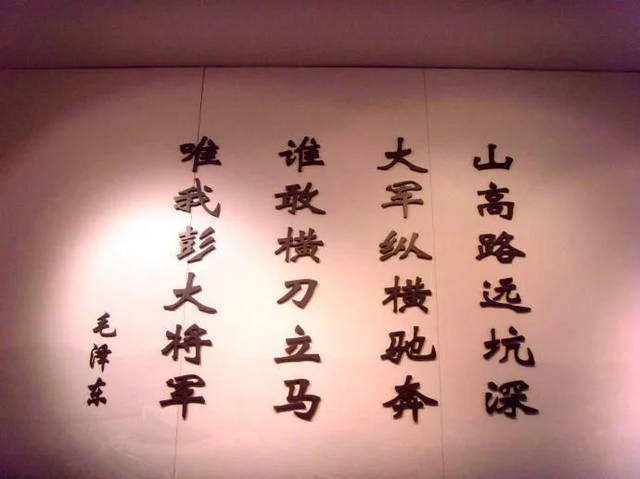 山高路远坑深
大军纵横驰奔
谁敢横刀立马
唯我彭大将军
毛泽东